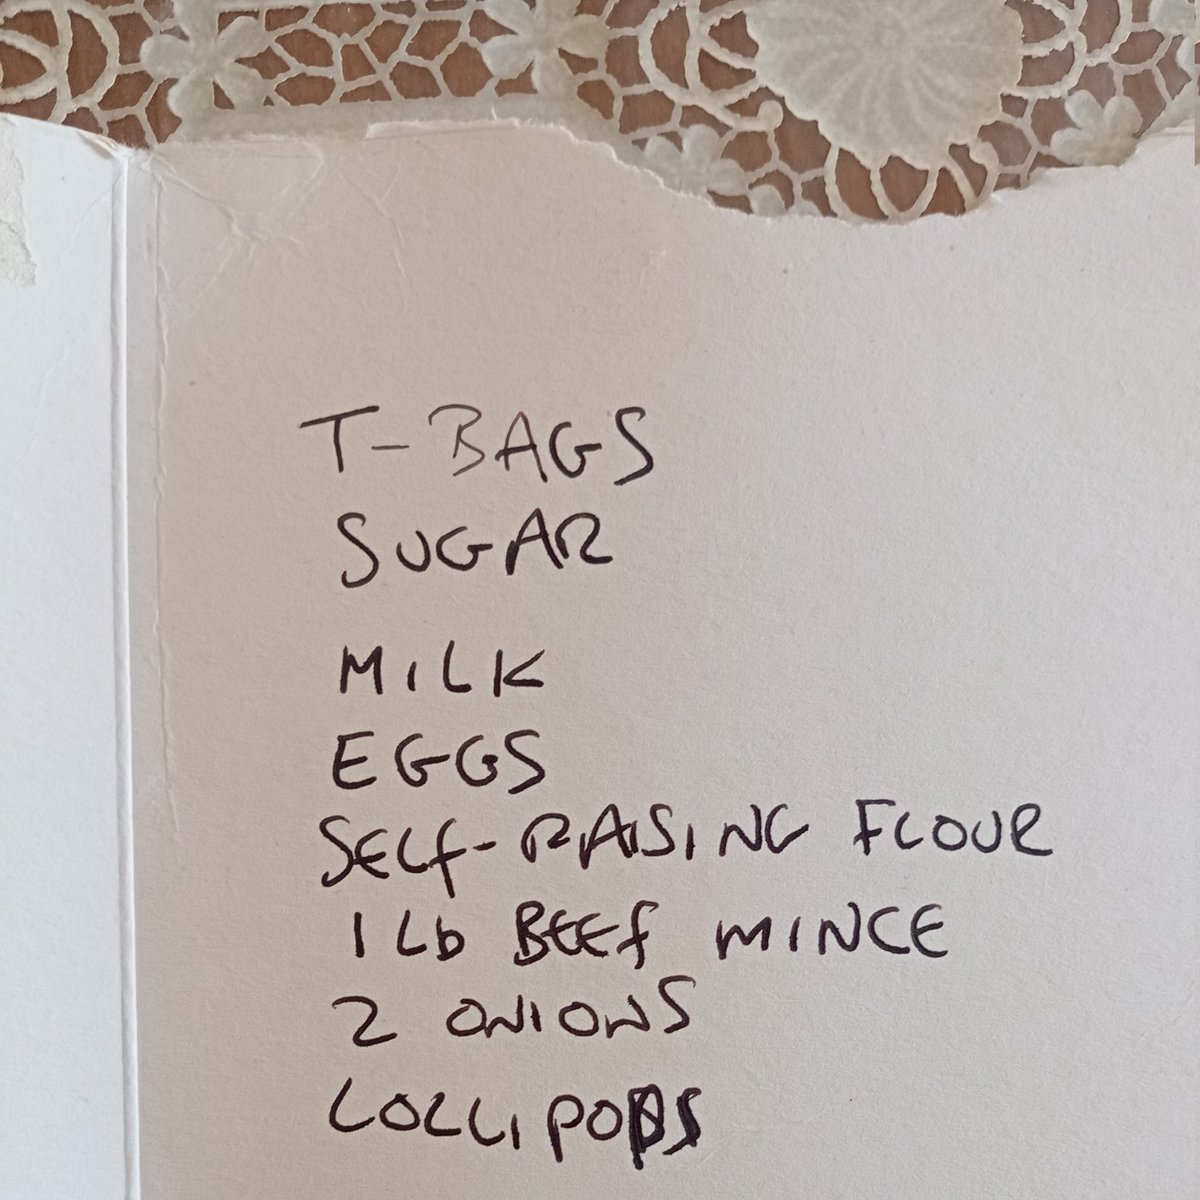 T-BAGS
SUGAR
MILK
EGGS
SELf-RAISING FLOUR
1 Lb BEEf MINCE
2 ONIONS
LOLLIPOPS